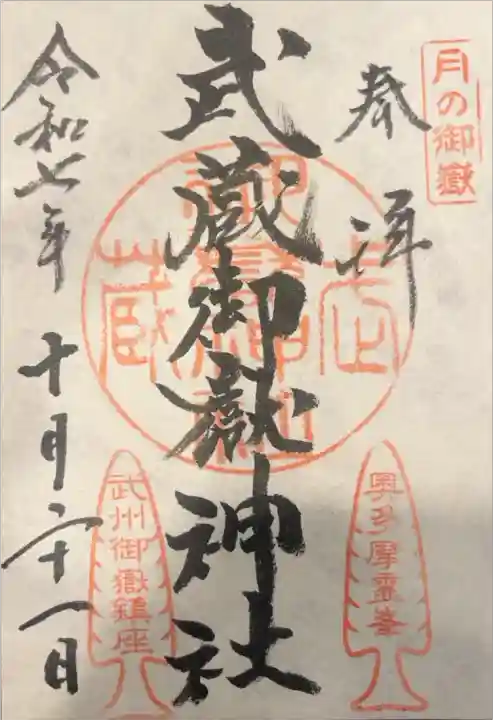 月の御嶽
奉拝
武蔵御嶽神社
奥多摩霊峯
武蔵御嶽神社
武州御嶽鎮座
令和七年十月二十一日